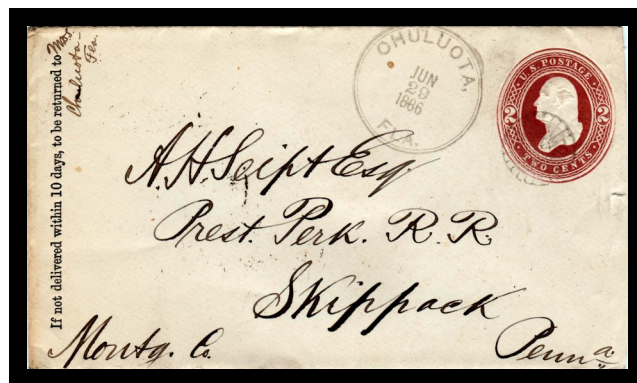 If not delivered within 10 days, to be returned to
Chuluota
Fla.
CHULUOTA,
JUN
29
1886
FLA.
U.S. POSTAGE
2 2
TWO CENTS
A. H. Seipt Esq.
Prest. Perk. R. R.
Skippack
Montg. Co. Penna.